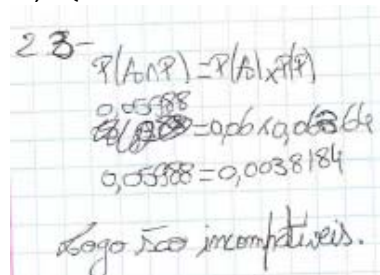 23-
P(A∩P) = P(A)xP(P)
0,05988
= 0,06x0,06364
0,05988 = 0,0038184
Logo são incompatíveis.